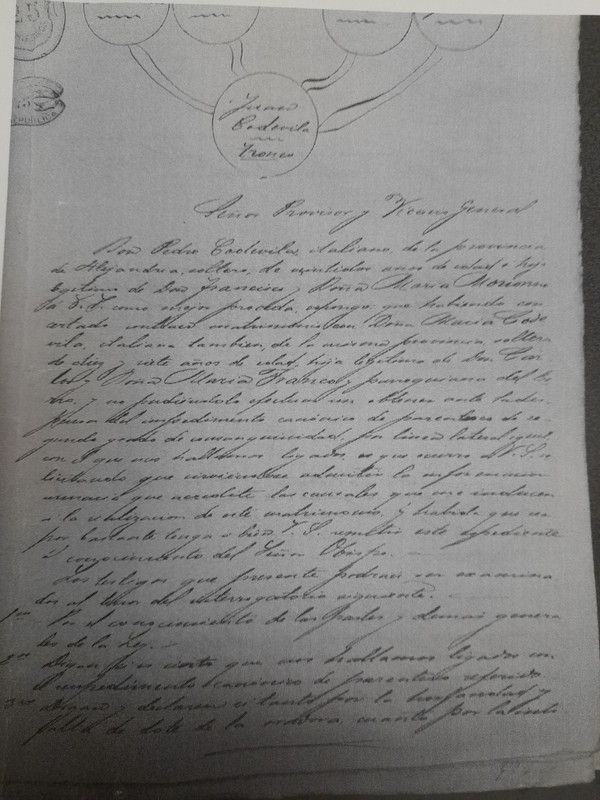 25
Juan
Codevila
Tronco
Señor Provisor y Vicario General
Don Pedro Codevila, italiano, de la provincia
de Alejandria, soltero, de veintiocho años de edad e hijo
legitimo de Don Francisco y Doña Maria Moriano
á V.S. como mejor proceda, expongo: que habiendo con
certado contraer matrimonio con Doña Maria Code
vila, italiana tambien, de la misma provincia, soltera
de diez y siete años de edad, hija legitima de Don Car
los y Doña Maria Franco y parroquiana del
y no pudiendolo efectuar sin obtener antes dis
pensa del impedimento canónico de parentesco de se
gundo grado de consanguinidad, por linea lateral igual
con que nos hallamos ligados, es que ocurro á V.S. so
licitando que sirviendose admitir la informacion
necesaria que acredite las causales que me inducen
a la realizacion de este matrimonio, y habida que sea
por bastante tenga a bien V.S. remitir este expediente
á conocimiento del Señor Obispo.
Los testigos que presente podran ser examina
dos al tenor del interrogatorio siguiente.
Por el conocimiento de las partes y demas genera
les de la Ley.
Digan si es cierto que nos hallamos ligados con
el impedimento canónico de parentesco referido.
Digan y declaren si tanto por la horfandad y
falta de dote de la oradora, cuanto por